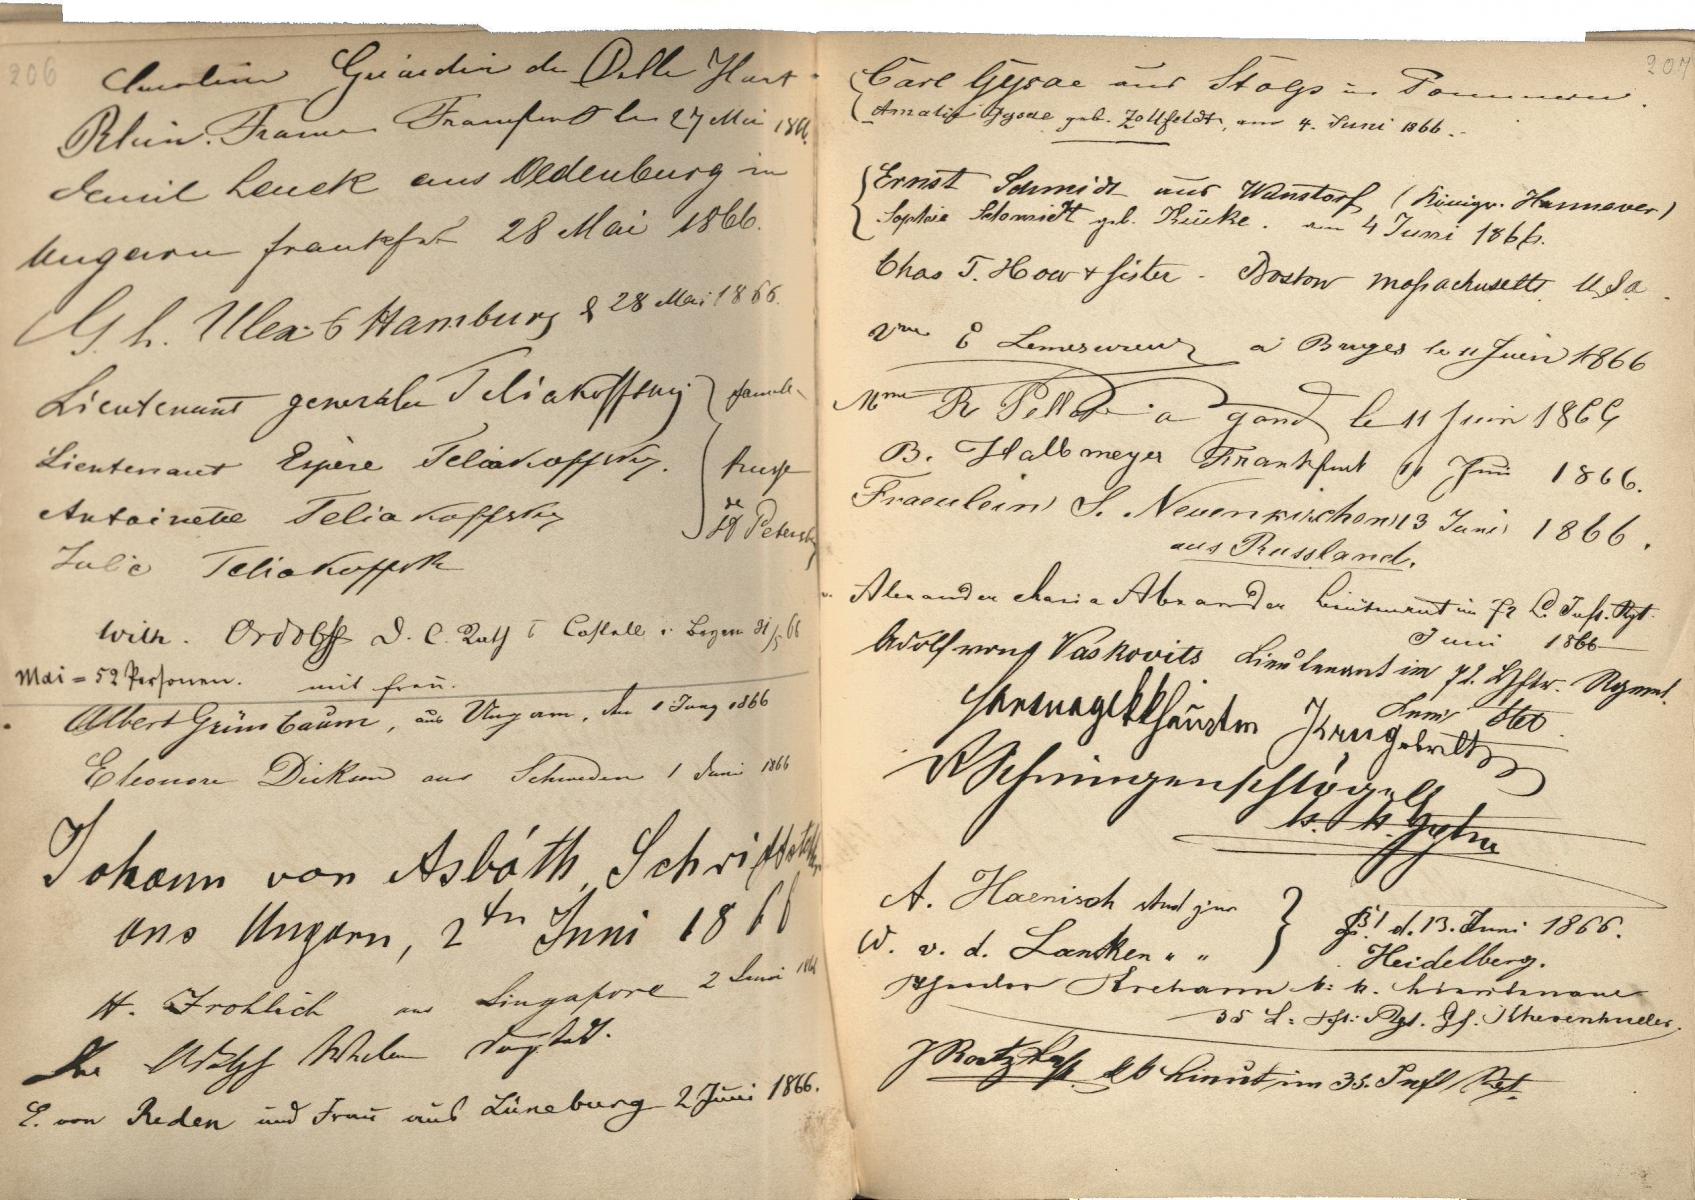 206
Girardin de
Rhin. France Francfort le 27 Mai 1866.
Leuck aus Oldenburg in
Ungarn frankfurt 28 Mai 1866.
G. L. Ulex Hamburg 28 Mai 1866.
Lieutenant general Teliakoffsky famille
Lieutenant Espère Teliakoffsky. Russe
Antoinette Teliakoffsky de St Petersb
Julie Teliakoffsk
Wilh. Ordolff D. C. Rath Castell Bayern 31/5 66
Mai = 52 Personen. mit frau.
Albert Grünbaum, aus Ungarn, 1 Juny 1866
Eleonore Dickson aus Schweden 1 Juni 1866
Johann von Asbóth, Schriftstell
aus Ungarn, 2ten Juni 1866
H. Frohlich aus Singapore 2 Juni 1866
Adolf Wilhelm
E. von Reden und Frau aus Lüneburg 2 Juni 1866.
207
Carl Gysae aus Stolp in Pommern.
Amalie Gysae geb. Zollfeldt, am 4. Juni 1866.
Ernst Schmidt aus Wunstorf (Königr. Hannover)
Sophie Schmidt geb. Rücke. am 4 Juni 1866.
Chas T. How & sister - Boston Massachusetts U S a.
Vme E Lemesureur a Bruges le 11 Juin 1866
Mme R a gand le 11 Juin 1866
B. Hallmeyer Frankfurt 11 Juni 1866.
Fraeulein S. Neuenkirchen 13 Juni 1866.
aus Russland.
Alexander Maria Alexander Lieutenant im 72 L. Inft. Rgt.
Juni 1866
Adolf von Vaskovits Lieutenant im 72. Rgmnt.
Juni
k. k.
A. Haenisch stud jur
W. v. d. Lancken " " d. 13. Juni 1866.
Heidelberg.
Theodor k. k. Lieutenant
35 L. Inft. Rgt. Gf. Khevenhueller.
Lieut im 35. Inft Rgt.